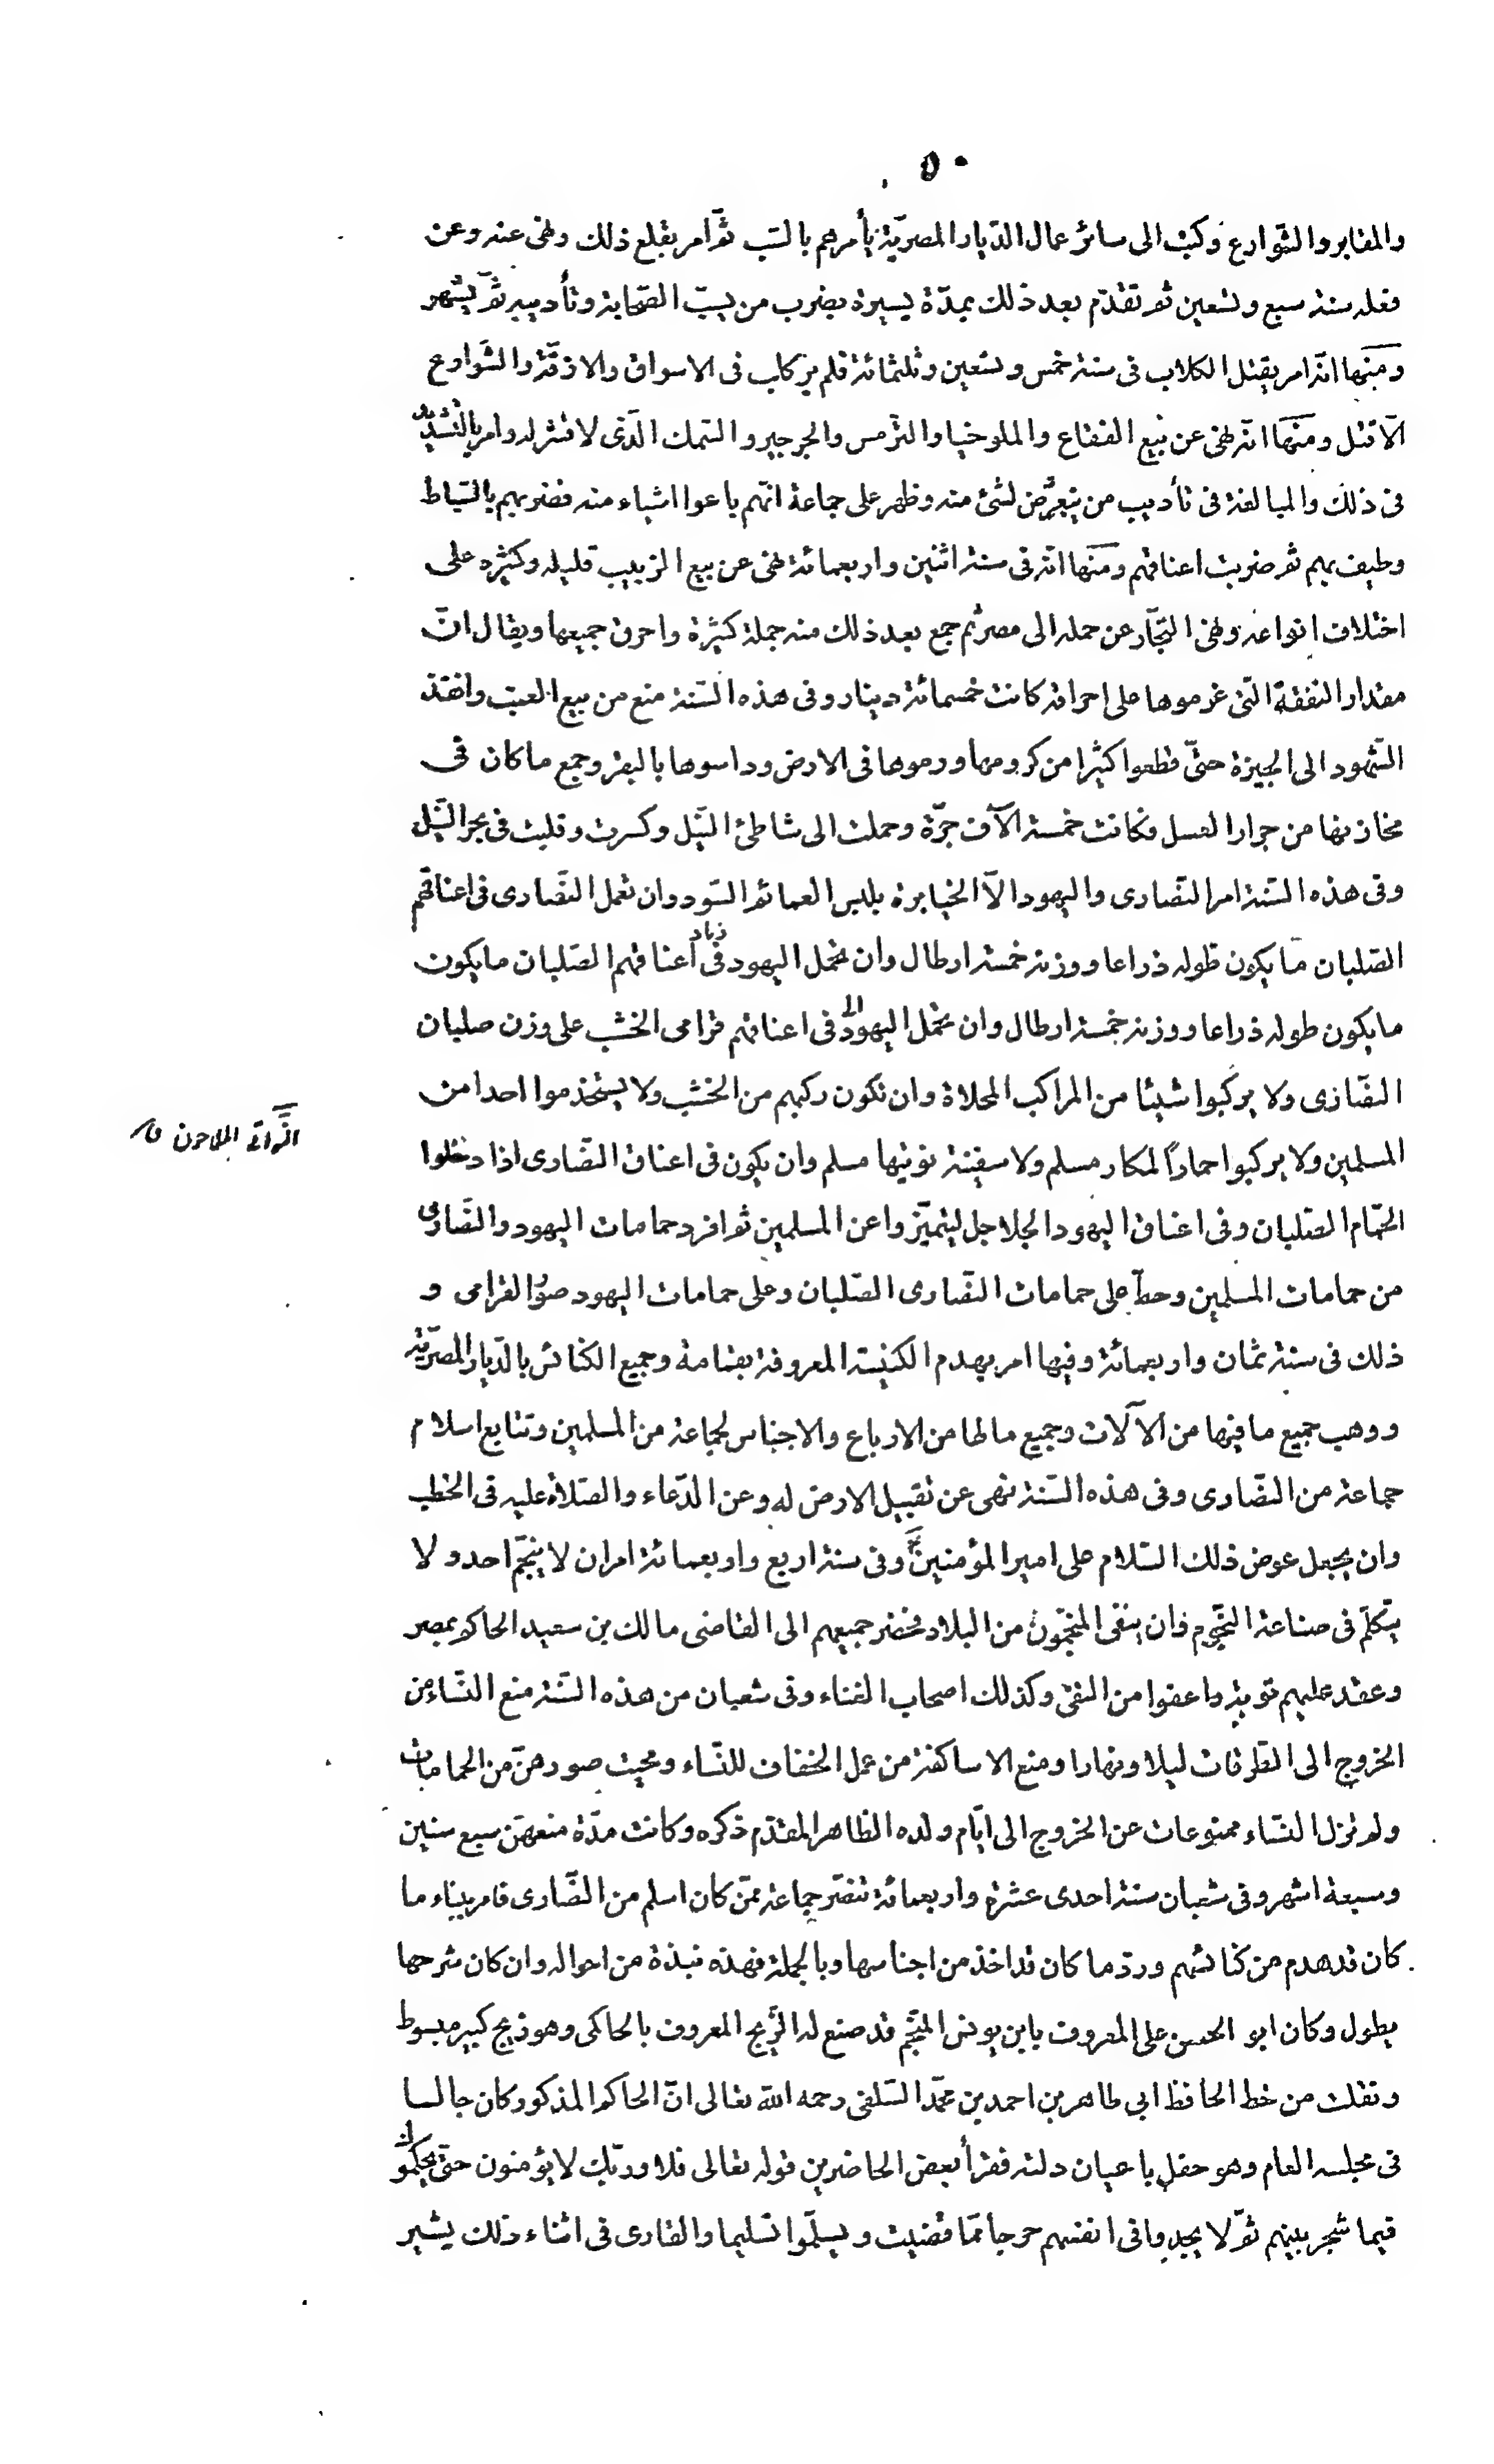 ٥٠
والمقابر والشوارع وكتب الى سائر عمال الديار المصرية يأمرهم بالسب ثم امر بقلع ذلك ونهى عنه وعن
فعله سنة سبع وتسعين ثم تقدم بعد ذلك بمدة يسيرة بضرب من يسب الصحابة وتأديبه ثم يشهر
ومنها انه امر بقتل الكلاب فى سنة خمس وتسعين وثلثمائة فلم ير كلب فى الاسواق والازقة والشوارع
الا قتل ومنها انه نهى عن بيع الفقاع والملوخيا والترمس والجرجير والسمك الذى لا قشر له وامر بالتشديد
فى ذلك والمبالغة فى تأديب من يتعرض لشئ منه وظهر على جماعة انهم باعوا اشياء منه فضربهم بالسياط
وطيف بهم ثم ضربت اعناقهم ومنها انه فى سنة اثنين واربعمائة نهى عن بيع الزبيب قليله وكثيره على
اختلاف انواعه ونهى التجار عن حمله الى مصر ثم جمع بعد ذلك منه جملة كثيرة واحرق جميعها ويقال ان
مقدار النفقة التى غرموها على احراقه كانت خمسمائة دينار وفى هذه السنة منع من بيع العنب وانفذ
الشهود الى الجيزة حتى قطعوا كثيرا من كرومها ورموها فى الارض وداسوها بالبقر وجمع ما كان فى
مخازنها من جرار العسل فكانت خمسة آلاف جرة وحملت الى شاطئ النيل وكسرت وقلبت فى بحر النيل
وفى هذه السنة امر النصارى واليهود الا الخيابرة بلبس العمائم السود وان تعمل النصارى فى اعناقهم
الصلبان ما يكون طوله ذراعا ووزنه خمسة ارطال وان تحمل اليهود فى اعناقهم الصلبان ما يكون
ما يكون طوله ذراعا ووزنه خمسة ارطال وان تحمل اليهود فى اعناقهم قرامى الخشب على وزن صلبان
النصارى ولا يركبوا شيئا من المراكب المحلاة وان تكون ركبهم من الخشب ولا يستخدموا احدا من
المسلمين ولا يركبوا حمارا لمكار مسلم ولا سفينة نوتيها مسلم وان يكون فى اعناق النصارى اذا دخلوا
الحمام الصلبان وفى اعناق اليهود الجلاجل ليتميزوا عن المسلمين ثم افرد حمامات اليهود والنصارى
من حمامات المسلمين وحط على حمامات النصارى الصلبان وعلى حمامات اليهود صور القرامى و
ذلك فى سنة ثمان واربعمائة وفيها امر بهدم الكنيسة المعروفة بقمامة وجميع الكنائس بالديار المصرية
ووهب جميع ما فيها من الآلات وجميع ما لها من الارباع والاجناس لجماعة من المسلمين وتتابع اسلام
جماعة من النصارى وفى هذه السنة نهى عن تقبيل الارض له وعن الدعاء والصلاة عليه فى الخطب
وان يجعل عوض ذلك السلام على امير المؤمنين وفى سنة اربع واربعمائة امر ان لا ينجم احد ولا
يتكلم فى صناعة النجوم وان ينفى المنجمون من البلاد فحضر جميعهم الى القاضى مالك بن سعيد الحاكم بمصر
وعقد عليهم توبة واعفوا من النفى وكذلك اصحاب الغناء وفى شعبان من هذه السنة منع النساء من
الخروج الى الطرقات ليلا ونهارا ومنع الاساكفة من عمل الخفاف للنساء ومحيت صورهن من الحمامات
ولم تزل النساء ممنوعات عن الخروج الى ايام ولده الظاهر المقدم ذكره وكانت مدة منعهن سبع سنين
وسبعة اشهر وفى شعبان سنة احدى عشرة واربعمائة تنصر جماعة ممن كان اسلم من النصارى فامر ببناء ما
كان قد هدم من كنائسهم ورد ما كان قد اخذ من اجناسها وبالجملة فهذه نبذة من احواله وان كان شرحها
يطول وكان ابو الحسن على المعروف بابن يونس المنجم قد صنع له الزيج المعروف بالحاكمى وهو زيج كبير مبسوط
ونقلت من خط الحافظ ابي طاهر بن احمد بن محمد السلفى رحمه الله تعالى ان الحاكم المذكور كان جالسا
فى مجلسه العام وهو حفل باعيان دلته فقرأ بعض الحاضرين قوله تعالى فلا وربك لا يؤمنون حتى يحكموك
فيما شجر بينهم ثم لا يجدوا فى انفسهم حرجا مما قضيت ويسلموا تسليما والقارى فى اثناء ذلك يشير